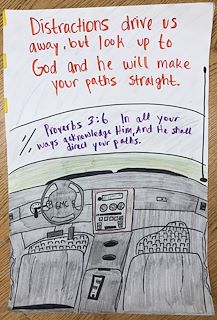 Distractions drive us
away, but look up to
God and he will make
your paths straight.
Proverbs 3:6 In all your
ways acknowledge Him, And He shall
direct your paths.
GMC